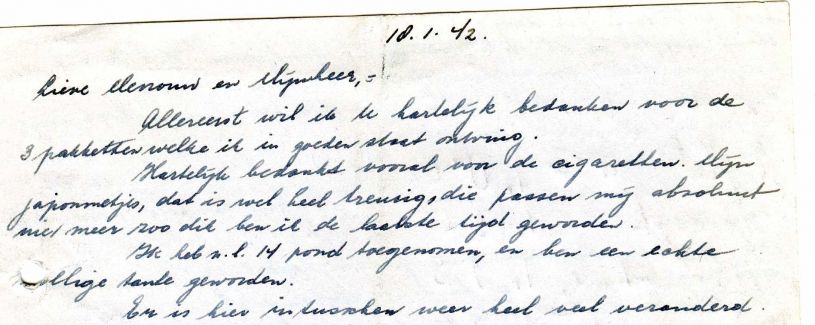 18.1.42.
Lieve Mevrouw en Mijnheer,=
Allereerst wil ik te hartelijk bedanken voor de
3 pakketten welke ik in goeden staat ontving.
Hartelijk bedankt vooral voor de cigaretten. Mijn
japonnetjes, dat is wel heel treurig, die passen mij absoluut
niet meer zoo dik ben ik de laatste tijd geworden.
Ik heb n.l. 14 pond toegenomen, en ben een echte
mollige tante geworden.
Er is hier intusschen weer heel veel veranderd.